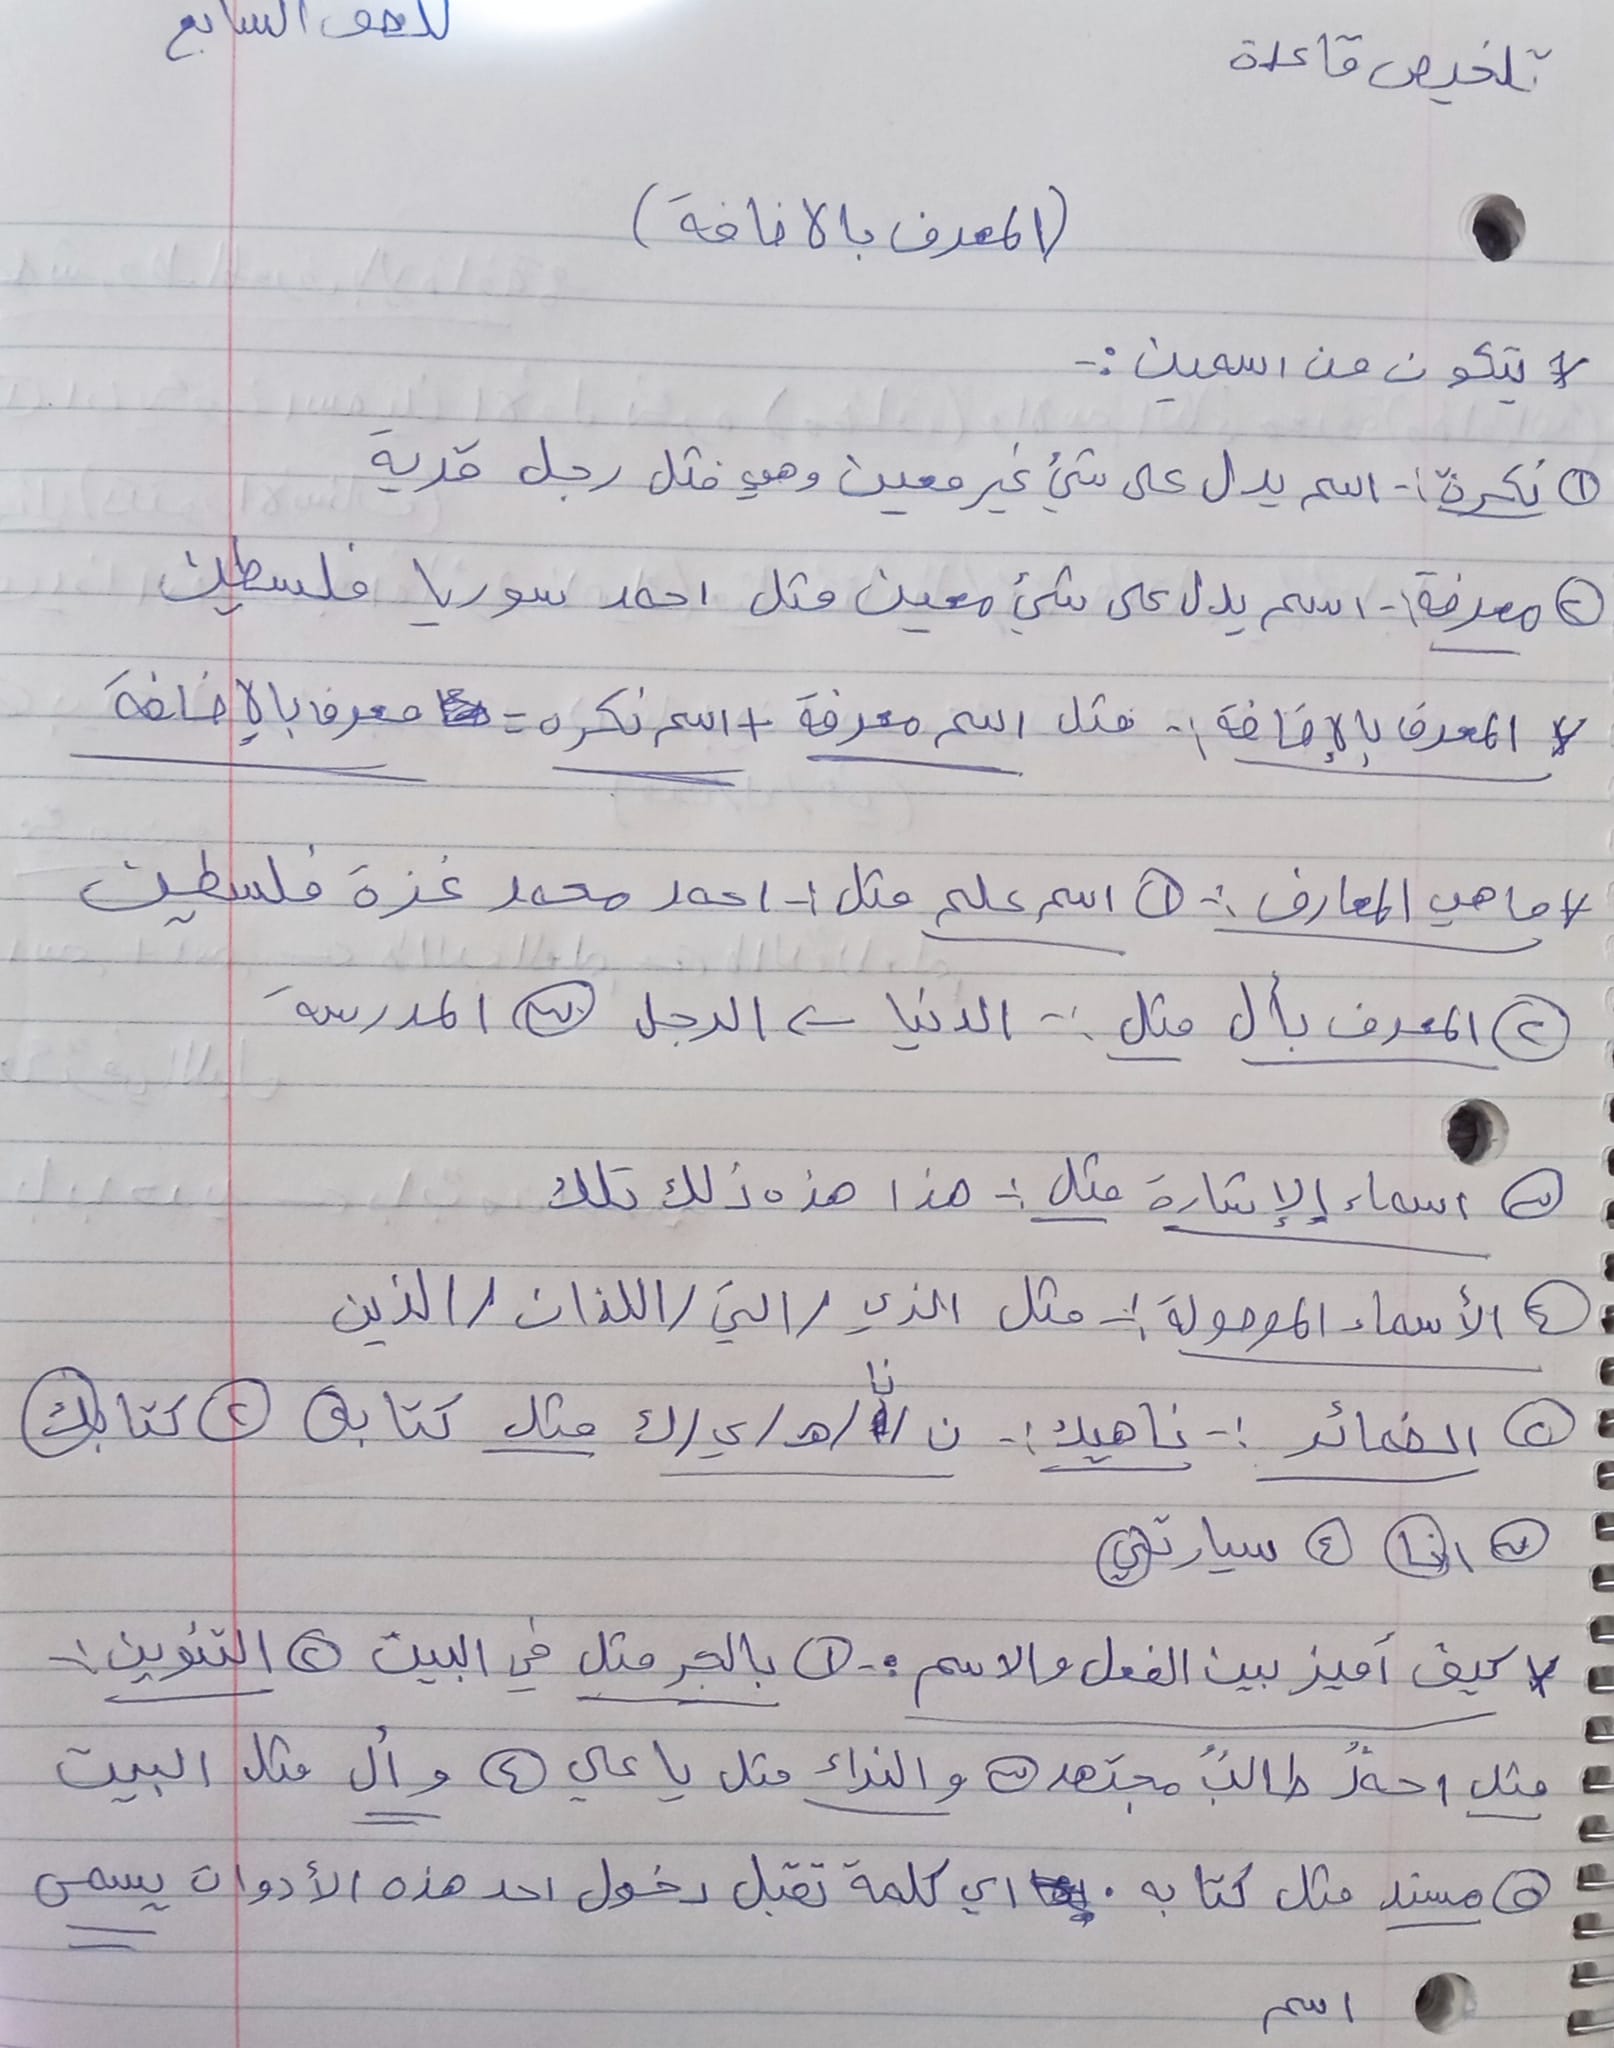 تلخيص قاعدة للصف السابع
(المعرف بالاضافة)
* يتكون من اسمين :-
① نكرة :- اسم يدل على شيئ غير معين وهو مثل رجل قرية
② معرفة :- اسم يدل على شيئ معين مثل احمد سوريا فلسطين
* المعرف بالإضافة :- مثل اسم معرفة + اسم نكره = معرف بالإضافة
* ما هي المعارف :- ① اسم علم مثل :- احمد محمد غزة فلسطين
② المعرف بأل مثل :- الدنيا ← الرجل ③ المدرسة
③ اسماء الإشارة مثل :- هذا هذه ذلك تلك
④ الأسماء الموصولة :- مثل الذي / التي / اللذان / الذين
⑤ الضمائر :- ناهيك :- ن / نا / هـ / ي / ك مثل كتابه ② كتابك
③ اننا ④ سيارتي
* كيف أميز بين الفعل والاسم :- ① بالجر مثل في البيت ② التنوين :-
مثل احمدٌ طالبٌ مجتهد ③ والنداء مثل يا علي ④ وأل مثل البيت
⑤ مسند مثل كتابه . اي كلمة تقبل دخول احد هذه الأدوات يسمى
اسم